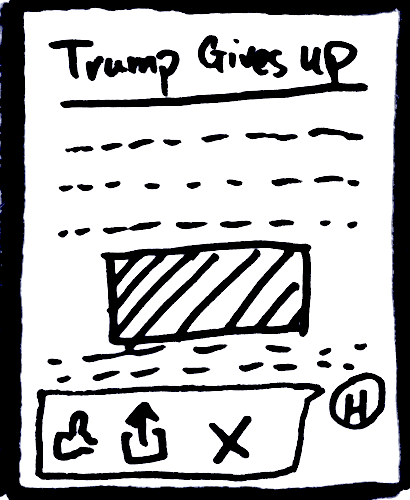 Trump Gives up
H